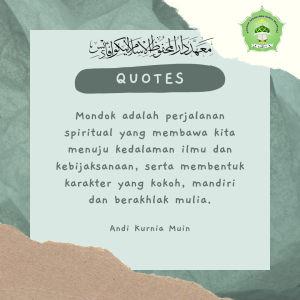 QUOTES
Mondok adalah perjalanan
spiritual yang membawa kita
menuju kedalaman ilmu dan
kebijaksanaan, serta membentuk
karakter yang kokoh, mandiri
dan berakhlak mulia.
Andi Kurnia Muin